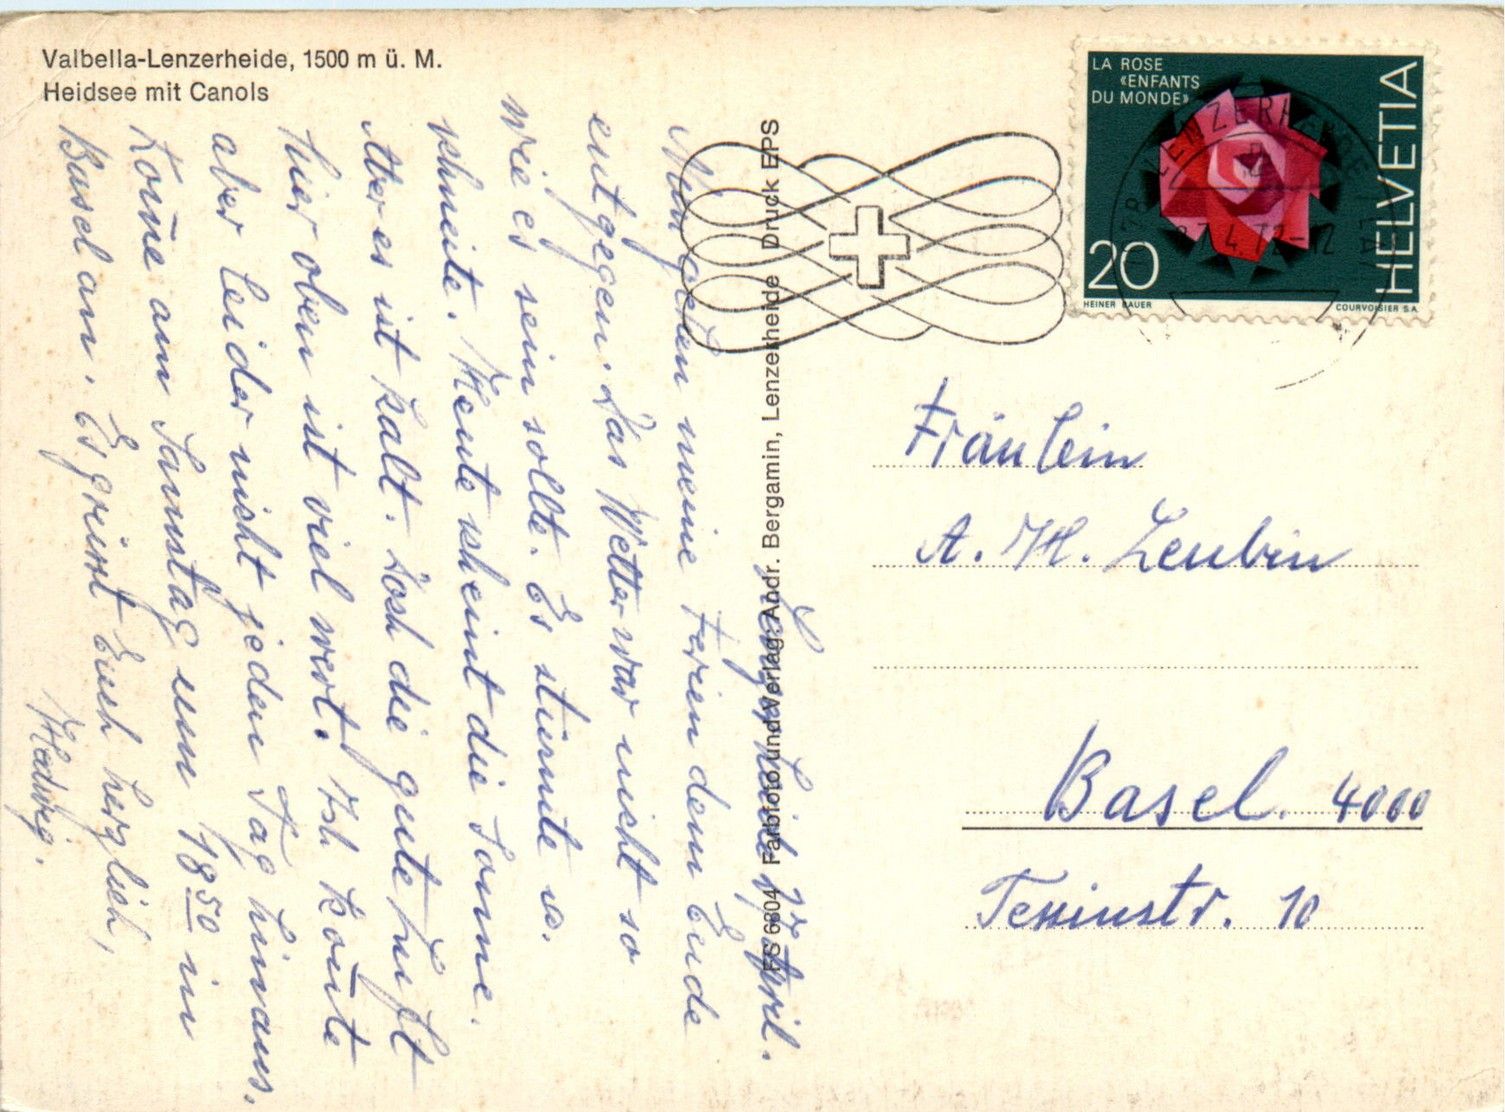 Valbella-Lenzerheide, 1500 m ü. M.
Heidsee mit Canols
LA ROSE
«ENFANTS
DU MONDE»
HELVETIA
20
HEINER BAUER
COURVOISIER S.A.
7.4.72-12
ES 6804 Farbfoto und Verlag: Andr. Bergamin, Lenzerheide Druck EPS
Lenzerheide, April.
Nun gehen meine Ferien dem Ende
entgegen. Das Wetter war nicht so
wie es sein sollte. Es stürmte u.
schneite. Heute scheint die Sonne.
Aber es ist kalt. Doch die gute Luft
hier oben ist viel wert. Ich konte
aber leider nicht jeden Tag hinaus.
Kome am Samstag um 18 50 in
Basel an. Es grüsst Euch herzlich,
Hedwig.
Fräulein
A. M. Leubin
Basel. 4000
Tessinstr. 10